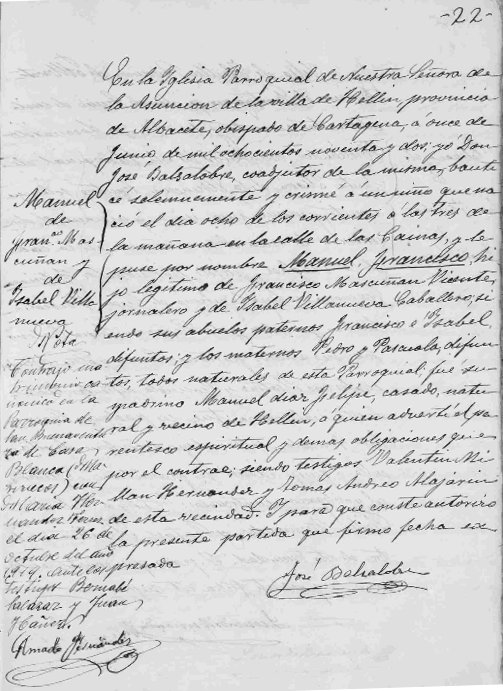 -22-
En la Iglesia Parroquial de Nuestra Señora de
la Asuncion de la villa de Hellin, provincia
de Albacete, obispado de Cartagena, á once de
Junio de mil ochocientos noventa y dos: yó Don
José Balsalobre, coadjutor de la misma, bauti
cé solemnemente y crismé á un niño que na
ció el dia ocho de los corrientes a las tres de
la mañana en la calle de las Cainas, y le
puse por nombre Manuel Francisco, hi
jo legitimo de Francisco Mascuñan Vicente,
jornalero y de Isabel Villanueva Caballero; si
endo sus abuelos paternos Francisco é Isabel
difuntos; y los maternos Pedro y Pascuala, difun
tos, todos naturales de esta Parroquial; fué su
padrino Manuel diaz Felipe, casado, natu
ral y vecino de Hellin, a quien advertí el pa
rentesco espiritual y demas obligaciones que
por el contrae; siendo testigos Valentin Mi
llan Hernandez y Tomas Andreo Alajarin
de esta vecindad. Y para que conste autorizo
la presente partida que firmo fecha ex
presada
José Balsalobre
Manuel
de
Fran.co Mas
cuñan y
de
Isabel Villa
nueva
Nota
Contrajo ma
trimonio ca
nonico en la
Parroquia de
San Buenaventu
ra de Casa
Blanca (Ma
rruecos) con
Maria Her
nandez
el dia 26 de
octubre del año
1919 ante los
testigos
Salazar y Juan
Ibañez.
Amado Fernández